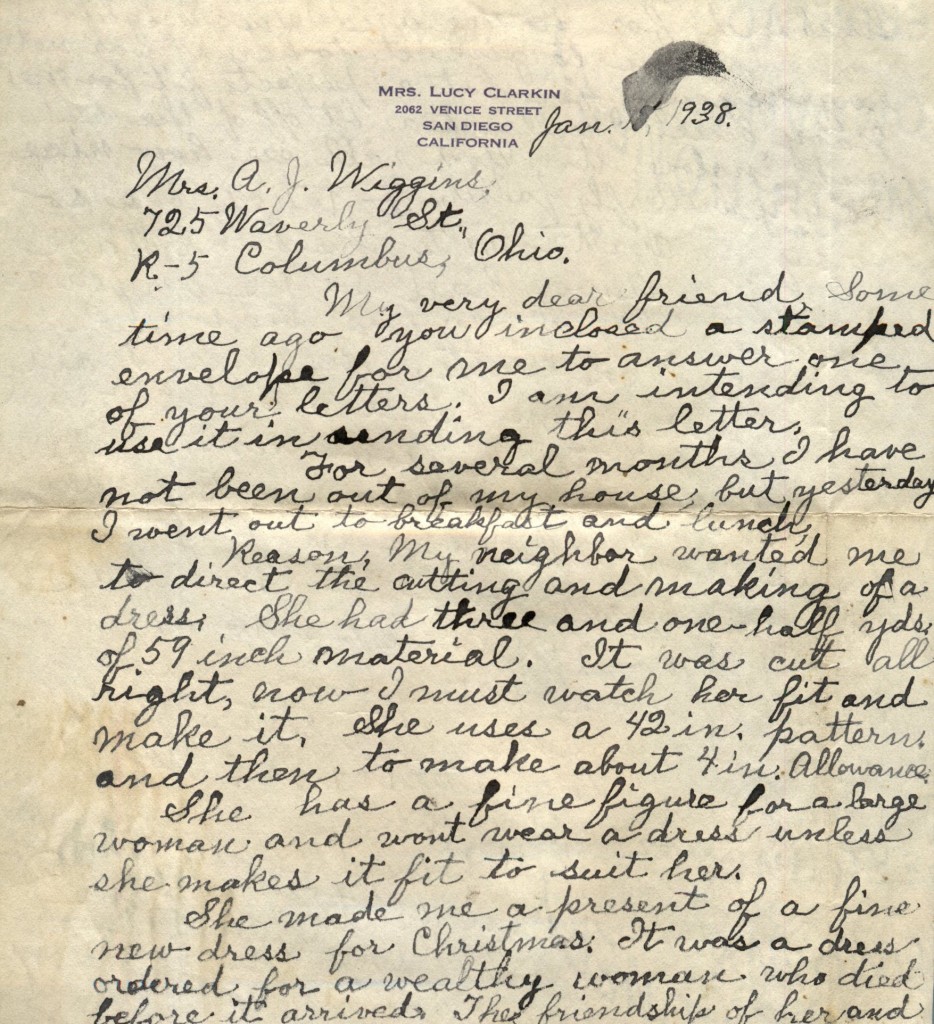 MRS. LUCY CLARKIN
2062 VENICE STREET
SAN DIEGO
CALIFORNIA
Jan. 1938.
Mrs. A. J. Wiggins,
725 Waverly St.,
R-5 Columbus, Ohio.
My very dear friend, Some
time ago you inclosed a stamped
envelope for me to answer one
of your letters. I am intending to
use it in sending this letter.
For several months I have
not been out of my house, but yesterday
I went out to breakfast and lunch,
Reason, My neighbor wanted me
to direct the cutting and making of a
dress, She had three and one-half yds.
of 59 inch material. It was cut all
right, now I must watch her fit and
make it, She uses a 42 in. pattern.
and then to make about 4 in. Allowance.
She has a fine figure for a large
woman and wont wear a dress unless
she makes it fit to suit her.
She made me a present of a fine
new dress for Christmas. It was a dress
ordered for a wealthy woman who died
before it arrived. The friendship of her and